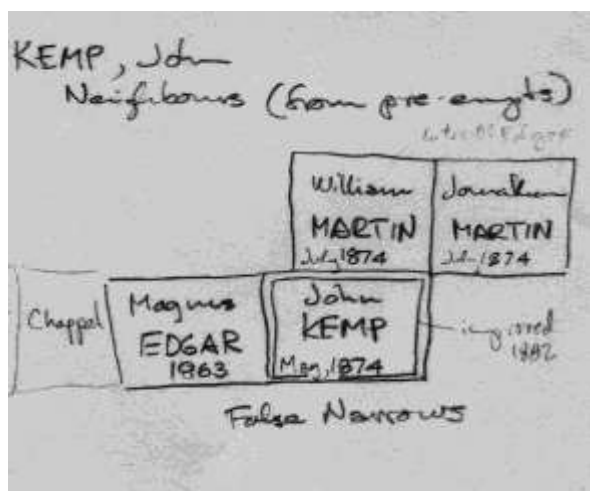 KEMP, John
Neighbours (from pre-empts)
William
MARTIN
July 1874
Jonathan
MARTIN
July 1874
Chappel
Magnus
EDGAR
1863
John
KEMP
May, 1874
improved
1882
False Narrows